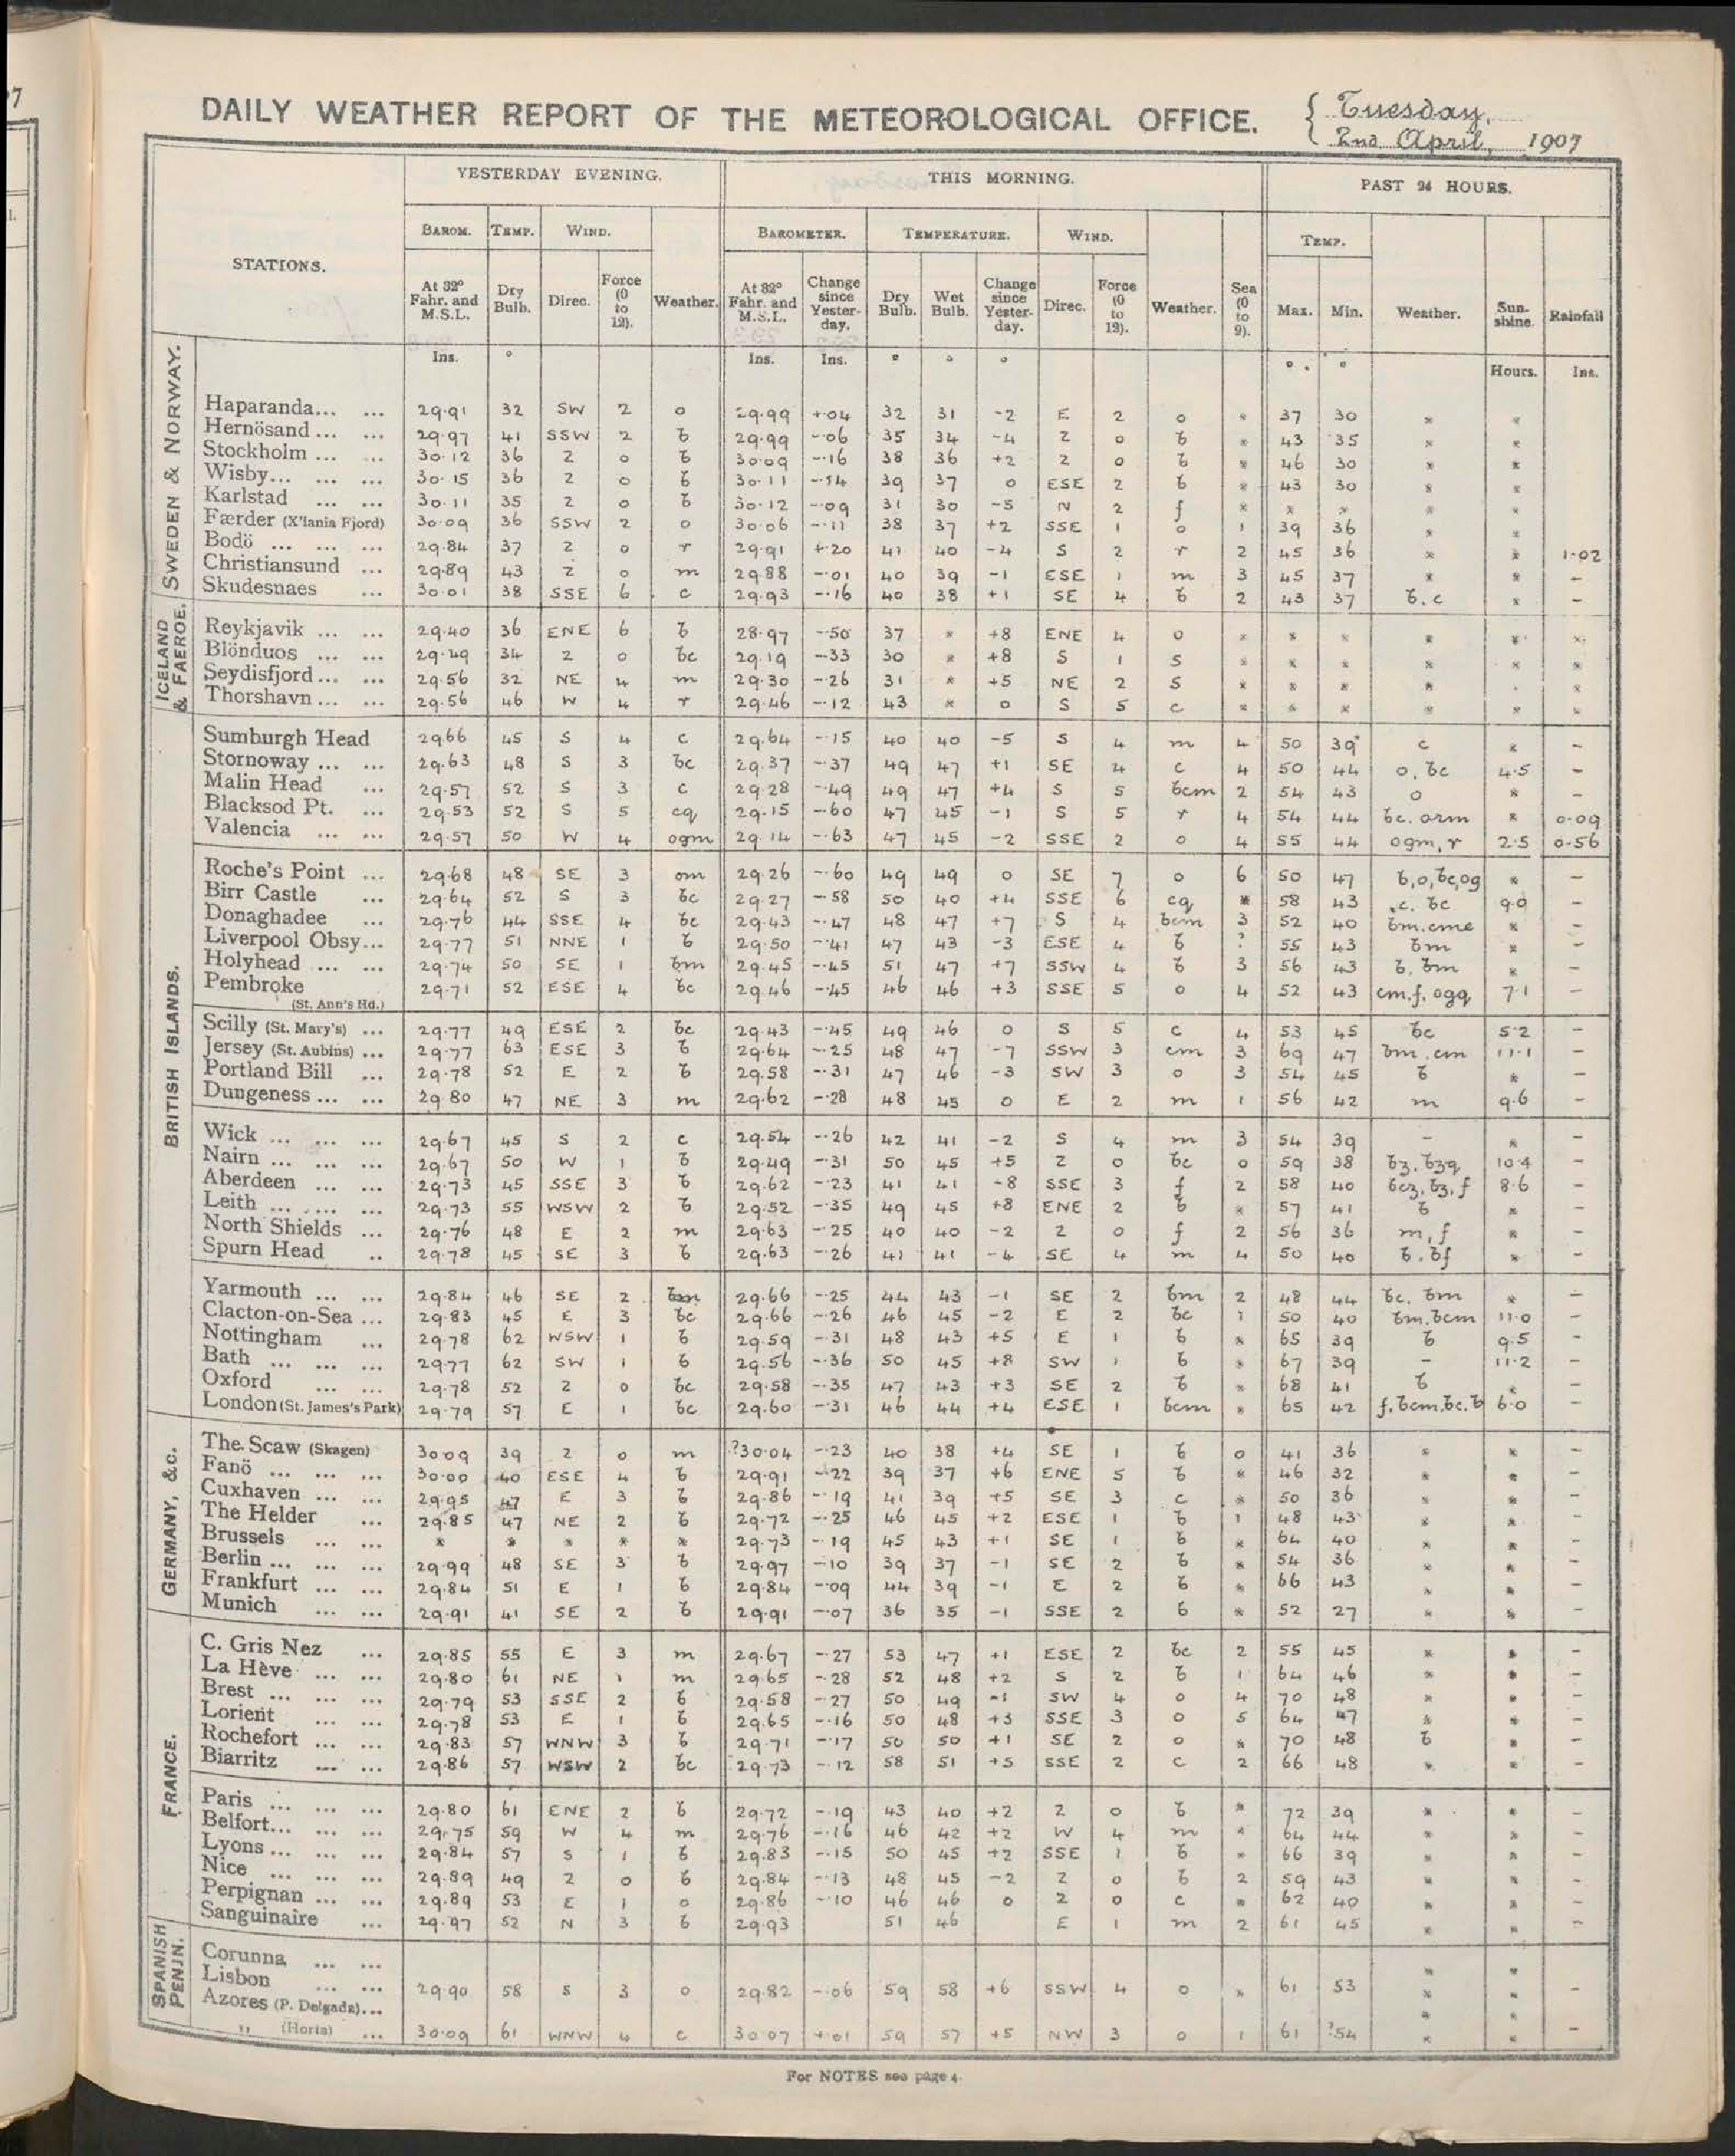 7
1.
DAILY WEATHER REPORT OF THE METEOROLOGICAL OFFICE. { Tuesday,
2nd April, 1907
YESTERDAY EVENING. THIS MORNING. PAST 24 HOURS.
BAROM. TEMP. WIND. BAROMETER. TEMPERATURE. WIND. TEMP.
STATIONS. At 32° Fahr. and M.S.L. Dry Bulb. Direc. Force (0 to 12). Weather. At 32° Fahr. and M.S.L. Change since Yester-day. Dry Bulb. Wet Bulb. Change since Yester-day. Direc. Force (0 to 12). Weather. Sea (0 to 9). Max. Min. Weather. Sun-shine. Rainfall
Ins. ° Ins. Ins. ° ° ° ° ° Hours. Ins.
SWEDEN & NORWAY.
Haparanda... ... 29.91 32 SW 2 o 29.99 +.04 32 31 -2 E 2 o * 37 30 * *
Hernösand ... ... 29.97 41 SSW 2 b 29.99 -.06 35 34 -4 Z 0 b * 43 35 * *
Stockholm ... ... 30.12 36 Z 0 b 30.09 -.16 38 36 +2 Z 0 b * 46 30 * *
Wisby... ... ... 30.15 36 Z 0 b 30.11 -.14 39 37 0 ESE 2 b * 43 30 * *
Karlstad ... ... 30.11 35 Z 0 b 30.12 -.09 31 30 -5 N 2 f * * * * *
Færder (X'iania Fjord) 30.09 36 SSW 2 o 30.06 -.11 38 37 +2 SSE 1 o 1 39 36 * *
Bodö ... ... ... 29.84 37 Z 0 r 29.91 +.20 41 40 -4 S 2 r 2 45 36 * * 1.02
Christiansund ... 29.89 43 Z 0 m 29.88 -.01 40 39 -1 ESE 1 m 3 45 37 * * -
Skudesnaes ... 30.01 38 SSE 6 c 29.93 -.16 40 38 +1 SE 4 b 2 43 37 b.c * -
ICELAND & FAEROE.
Reykjavik ... ... 29.40 36 ENE 6 b 28.97 -.50 37 * +8 ENE 4 o * * * * * *
Blönduos ... ... 29.49 34 Z 0 bc 29.19 -.33 30 * +8 S 1 s * * * * * *
Seydisfjord... ... 29.56 32 NE 4 m 29.30 -.26 31 * +5 NE 2 s * * * * . *
Thorshavn ... ... 29.56 46 W 4 r 29.46 -.12 43 * 0 S 5 c * * * * * *
BRITISH ISLANDS.
Sumburgh Head 29.66 45 S 4 c 29.64 -.15 40 40 -5 S 4 m 4 50 39 c * -
Stornoway ... ... 29.63 48 S 3 bc 29.37 -.37 49 47 +1 SE 4 c 4 50 44 o, bc 4.5 -
Malin Head ... 29.57 52 S 3 c 29.28 -.49 49 47 +4 S 5 bcm 2 54 43 o * -
Blacksod Pt. ... 29.53 52 S 5 cq 29.15 -.60 47 45 -1 S 5 r 4 54 44 bc. orm * 0.09
Valencia ... ... 29.57 50 W 4 ogm 29.14 -.63 47 45 -2 SSE 2 o 4 55 44 ogm, r 2.5 0.56
Roche's Point ... 29.68 48 SE 3 om 29.26 -.60 49 49 0 SE 7 o 6 50 47 b,o,bc,og * -
Birr Castle ... 29.64 52 S 3 bc 29.27 -.58 50 40 +4 SSE 6 cq * 58 43 c. bc 9.9 -
Donaghadee ... 29.76 44 SSE 4 bc 29.43 -.47 48 47 +7 S 4 bcm 3 52 40 bm.cme * -
Liverpool Obsy... 29.77 51 NNE 1 b 29.50 -.41 47 43 -3 ESE 4 b ? 55 43 bm * -
Holyhead ... ... 29.74 50 SE 1 bm 29.45 -.45 51 47 +7 SSW 4 b 3 56 43 b, bm * -
Pembroke 29.71 52 ESE 4 bc 29.46 -.45 46 46 +3 SSE 5 o 4 52 43 cm.f, ogq 7.1 -
(St. Ann's Hd.)
Scilly (St. Mary's) ... 29.77 49 ESE 2 bc 29.43 -.45 49 46 0 S 5 c 4 53 45 bc 5.2 -
Jersey (St. Aubins) ... 29.77 63 ESE 3 b 29.64 -.25 48 47 -7 SSW 3 cm 3 69 47 bm, cm 11.1 -
Portland Bill ... 29.78 52 E 2 b 29.58 -.31 47 46 -3 SW 3 o 3 54 45 b * -
Dungeness ... ... 29.80 47 NE 3 m 29.62 -.28 48 45 0 E 2 m 1 56 42 m 9.6 -
Wick ... ... ... 29.67 45 S 2 c 29.54 -.26 42 41 -2 S 4 m 3 54 39 - * -
Nairn ... ... ... 29.67 50 W 1 b 29.49 -.31 50 45 +5 Z 0 bc 0 59 38 bz, bzq 10.4 -
Aberdeen ... ... 29.73 45 SSE 3 b 29.62 -.23 41 41 -8 SSE 3 f 2 58 40 bcz, bz, f 8.6 -
Leith ... ... ... 29.73 55 WSW 2 b 29.52 -.35 49 45 +8 ENE 2 b * 57 41 b * -
North Shields ... 29.76 48 E 2 m 29.63 -.25 40 40 -2 Z 0 f 2 56 36 m, f * -
Spurn Head .. 29.78 45 SE 3 b 29.63 -.26 41 41 -4 SE 4 m 4 50 40 b. bf * -
Yarmouth ... ... 29.84 46 SE 2 bm 29.66 -.25 44 43 -1 SE 2 bm 2 48 44 bc. bm * -
Clacton-on-Sea ... 29.83 45 E 3 bc 29.66 -.26 46 45 -2 E 2 bc 1 50 40 bm, bcm 11.0 -
Nottingham ... 29.78 62 WSW 1 b 29.59 -.31 48 43 +5 E 1 b * 65 39 b 9.5 -
Bath ... ... ... 29.77 62 SW 1 b 29.56 -.36 50 45 +8 SW 1 b * 67 39 - 11.2 -
Oxford ... ... 29.78 52 Z 0 bc 29.58 -.35 47 43 +3 SE 2 b * 68 41 b * -
London (St. James's Park) 29.79 57 E 1 bc 29.60 -.31 46 44 +4 ESE 1 bcm * 65 42 f, bcm, bc. b 6.0 -
GERMANY, &c.
The Scaw (Skagen) 30.09 39 Z 0 m ?30.04 -.23 40 38 +4 SE 1 b 0 41 36 * * -
Fanö ... ... ... 30.00 40 ESE 4 b 29.91 -.22 39 37 +6 ENE 5 b * 46 32 * * -
Cuxhaven ... ... 29.95 47 E 3 b 29.86 -.19 41 39 +5 SE 3 c * 50 36 * * -
The Helder ... 29.85 47 NE 2 b 29.72 -.25 46 45 +2 ESE 1 b 1 48 43 * * -
Brussels ... ... * * * * * 29.73 -.19 45 43 +1 SE 1 b * 64 40 * * -
Berlin ... ... ... 29.99 48 SE 3 b 29.97 -.10 39 37 -1 SE 2 b * 54 36 * * -
Frankfurt ... ... 29.84 51 E 1 b 29.84 -.09 44 39 -1 E 2 b * 66 43 * * -
Munich ... ... 29.91 41 SE 2 b 29.91 -.07 36 35 -1 SSE 2 b * 52 27 * * -
FRANCE.
C. Gris Nez ... 29.85 55 E 3 m 29.67 -.27 53 47 +1 ESE 2 bc 2 55 45 * * -
La Hève ... ... 29.80 61 NE 1 m 29.65 -.28 52 48 +2 S 2 b 1 64 46 * * -
Brest ... ... ... 29.79 53 SSE 2 b 29.58 -.27 50 49 -1 SW 4 o 4 70 48 * * -
Lorient ... ... 29.78 53 E 1 b 29.65 -.16 50 48 +3 SSE 3 o 5 64 47 * * -
Rochefort ... ... 29.83 57 WNW 3 b 29.71 -.17 50 50 +1 SE 2 o * 70 48 b * -
Biarritz ... ... 29.86 57 WSW 2 bc 29.73 -.12 58 51 +5 SSE 2 c 2 66 48 * * -
Paris ... ... ... 29.80 61 ENE 2 b 29.72 -.19 43 40 +2 Z 0 b * 72 39 * * -
Belfort... ... ... 29.75 59 W 4 m 29.76 -.16 46 42 +2 W 4 m * 64 44 * * -
Lyons ... ... ... 29.84 57 S 1 b 29.83 -.15 50 45 +2 SSE 1 b * 66 39 * * -
Nice ... ... ... 29.89 49 Z 0 b 29.84 -.13 48 45 -2 Z 0 b 2 59 43 * * -
Perpignan ... ... 29.89 53 E 1 o 29.86 -.10 46 46 0 Z 0 c * 62 40 * * -
Sanguinaire ... 29.97 52 N 3 b 29.93 51 46 E 1 m 2 61 45 * * -
SPANISH PENIN.
Corunna ... ... * *
Lisbon ... ... 29.90 58 S 3 o 29.82 -.06 59 58 +6 SSW 4 o * 61 53 * * -
Azores (P. Delgada)... * *
" (Horta) ... 30.09 61 WNW 4 c 30.07 +.01 59 57 +5 NW 3 o 1 61 ?54 * * -
For NOTES see page 4.